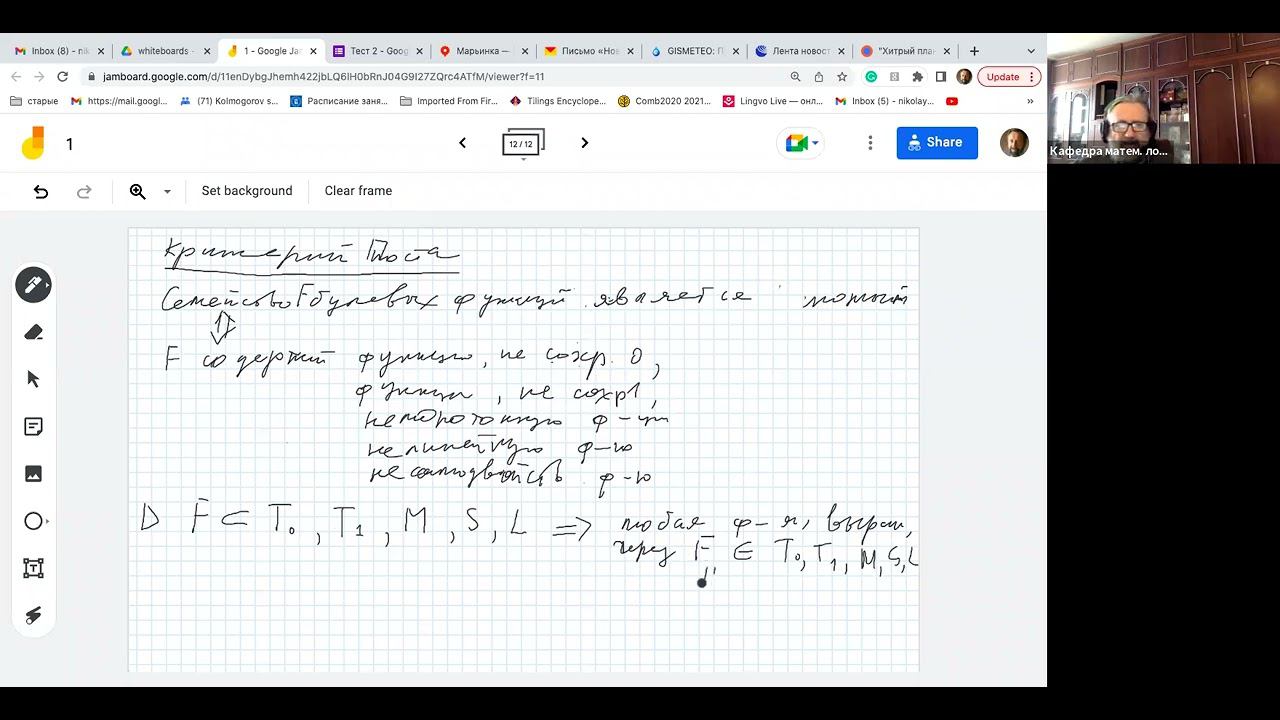 Inbox (8) - nik
whiteboards -
1 - Google Ja
Тест 2 - Goog
Марьинка —
Письмо «Нов
GISMETEO: П
Лента новост
"Хитрый план
jamboard.google.com/d/11enDybgJhemh422jbLQ6IH0bRnJ04G9I27ZQrc4ATfM/viewer?f=11
Update
старые
https://mail.googl...
(71) Kolmogorov s...
Расписание заня...
Imported From Fir...
Tilings Encyclope...
Comb2020 2021...
Lingvo Live — онл...
Inbox (5) - nikolay...
»
1
12 / 12
Share
Кафедра матем. ло...
Set background
Clear frame
Критерий Поста
Семейство F булевых функций является полным
⇕
F содержит функцию, не сохр. 0,
функцию, не сохр 1,
немонотонную ф-ию
нелинейную ф-ю
несамодвойств. ф-ю
D F ⊂ T₀, T₁, M, S, L ⇒ любая ф-я, выраж,
через F ∈ T₀, T₁, M, S, L